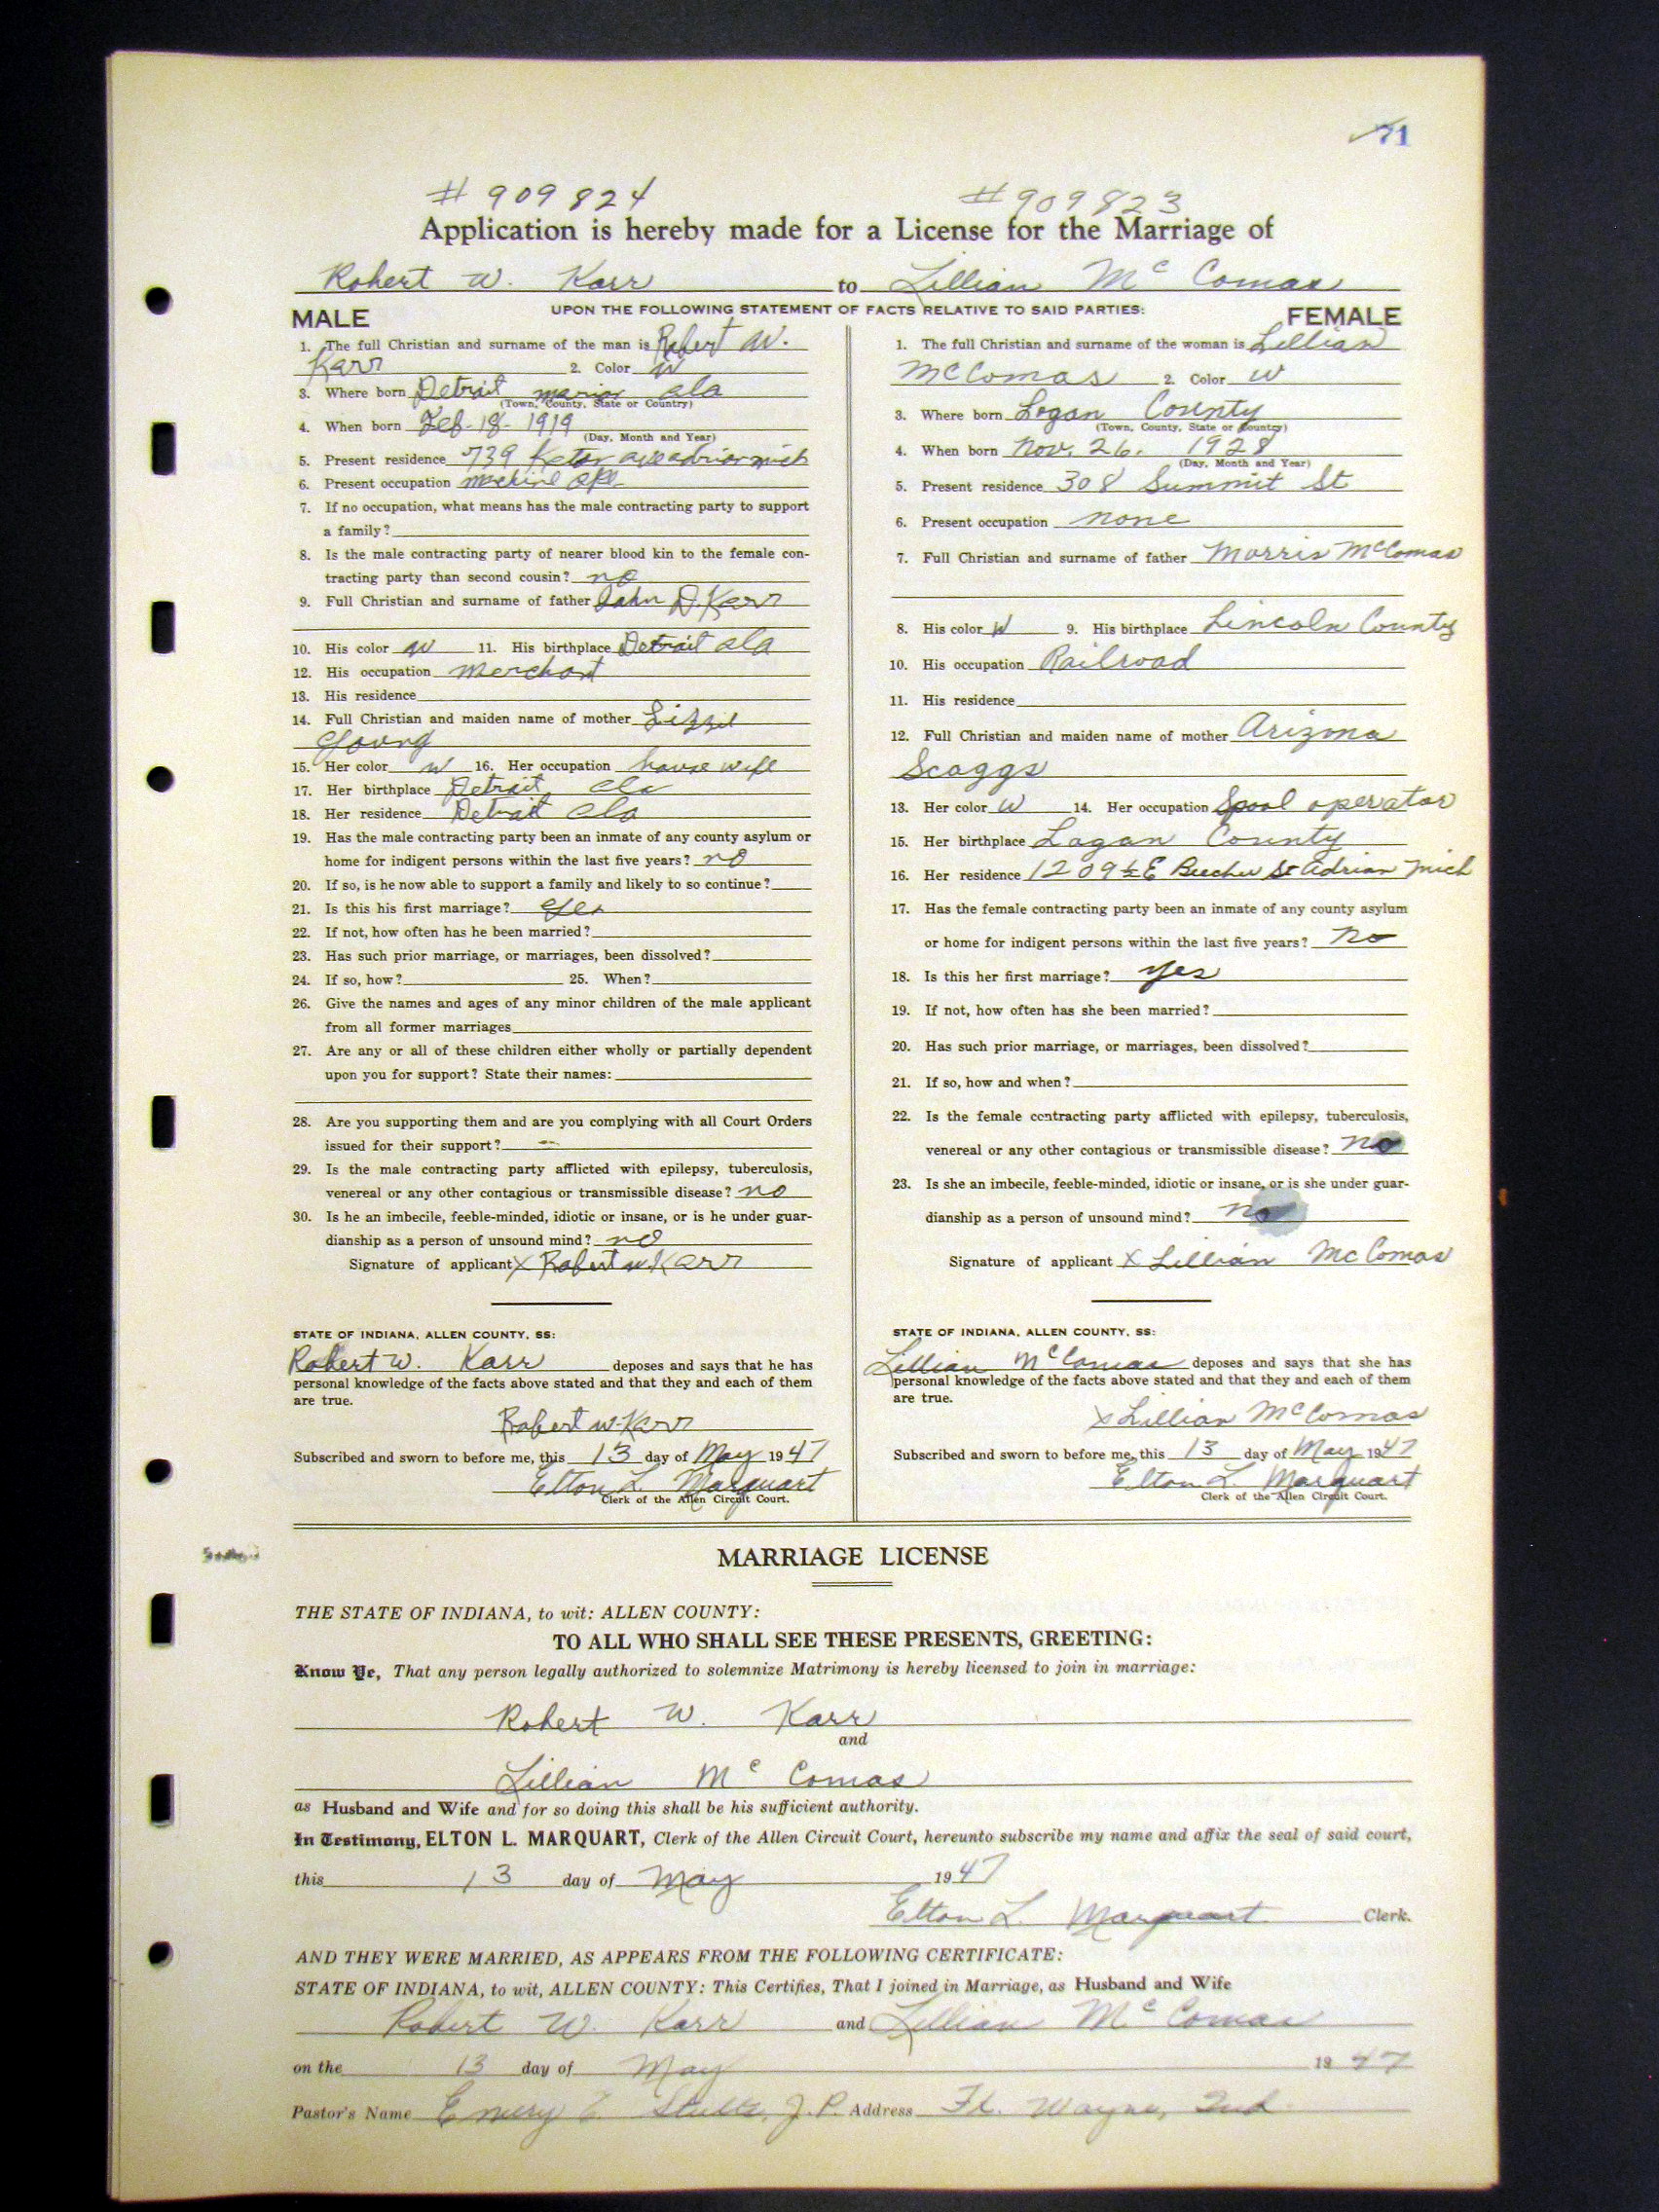 71
# 909824 # 909823
Application is hereby made for a License for the Marriage of
Robert W. Karr to Lillian Mc Comas
UPON THE FOLLOWING STATEMENT OF FACTS RELATIVE TO SAID PARTIES:
MALE
1. The full Christian and surname of the man is Robert W.
Karr 2. Color W
3. Where born Detroit marion ala
(Town, County, State or Country)
4. When born Feb-18-1919
(Day, Month and Year)
5. Present residence 739 ave adrian mich
6. Present occupation machine op
7. If no occupation, what means has the male contracting party to support
a family?
8. Is the male contracting party of nearer blood kin to the female con-
tracting party than second cousin? no
9. Full Christian and surname of father John D. Karr
10. His color W 11. His birthplace Detroit ala
12. His occupation merchant
13. His residence
14. Full Christian and maiden name of mother Lizzie
Young
15. Her color W 16. Her occupation house wife
17. Her birthplace Detroit, ala
18. Her residence Detroit ala
19. Has the male contracting party been an inmate of any county asylum or
home for indigent persons within the last five years? no
20. If so, is he now able to support a family and likely to so continue?
21. Is this his first marriage? yes
22. If not, how often has he been married?
23. Has such prior marriage, or marriages, been dissolved?
24. If so, how? 25. When?
26. Give the names and ages of any minor children of the male applicant
from all former marriages
27. Are any or all of these children either wholly or partially dependent
upon you for support? State their names:
28. Are you supporting them and are you complying with all Court Orders
issued for their support? —
29. Is the male contracting party afflicted with epilepsy, tuberculosis,
venereal or any other contagious or transmissible disease? no
30. Is he an imbecile, feeble-minded, idiotic or insane, or is he under guar-
dianship as a person of unsound mind? no
Signature of applicant X Robert W Karr
STATE OF INDIANA, ALLEN COUNTY, SS:
Robert W. Karr deposes and says that he has
personal knowledge of the facts above stated and that they and each of them
are true.
Robert W. Karr
Subscribed and sworn to before me, this 13 day of May 1947
Elton L. Marquart
Clerk of the Allen Circuit Court.
FEMALE
1. The full Christian and surname of the woman is Lillian
McComas 2. Color W
3. Where born Logan County
(Town, County, State or Country)
4. When born Nov. 26. 1928
(Day, Month and Year)
5. Present residence 308 Summit St
6. Present occupation none
7. Full Christian and surname of father Morris McComas
8. His color W 9. His birthplace Lincoln County
10. His occupation Railroad
11. His residence
12. Full Christian and maiden name of mother Arizona
Scaggs
13. Her color W 14. Her occupation Spool operator
15. Her birthplace Logan County
16. Her residence 1209½ E Beecher St Adrian Mich
17. Has the female contracting party been an inmate of any county asylum
or home for indigent persons within the last five years? No
18. Is this her first marriage? yes
19. If not, how often has she been married?
20. Has such prior marriage, or marriages, been dissolved?
21. If so, how and when?
22. Is the female contracting party afflicted with epilepsy, tuberculosis,
venereal or any other contagious or transmissible disease? no
23. Is she an imbecile, feeble-minded, idiotic or insane, or is she under guar-
dianship as a person of unsound mind? no
Signature of applicant X Lillian McComas
STATE OF INDIANA, ALLEN COUNTY, SS:
Lillian McComas deposes and says that she has
personal knowledge of the facts above stated and that they and each of them
are true.
X Lillian McComas
Subscribed and sworn to before me, this 13 day of May 1947
Elton L. Marquart
Clerk of the Allen Circuit Court.
MARRIAGE LICENSE
THE STATE OF INDIANA, to wit: ALLEN COUNTY:
TO ALL WHO SHALL SEE THESE PRESENTS, GREETING:
Know Ye, That any person legally authorized to solemnize Matrimony is hereby licensed to join in marriage:
Robert W. Karr
and
Lillian Mc Comas
as Husband and Wife and for so doing this shall be his sufficient authority.
In Testimony, ELTON L. MARQUART, Clerk of the Allen Circuit Court, hereunto subscribe my name and affix the seal of said court,
this 13 day of May 1947
Elton L. Marquart Clerk.
AND THEY WERE MARRIED, AS APPEARS FROM THE FOLLOWING CERTIFICATE:
STATE OF INDIANA, to wit, ALLEN COUNTY: This Certifies, That I joined in Marriage, as Husband and Wife
Robert W. Karr and Lillian Mc Comas
on the 13 day of May 1947
Pastor's Name Emery E. J. P. Address Ft. Wayne, Ind